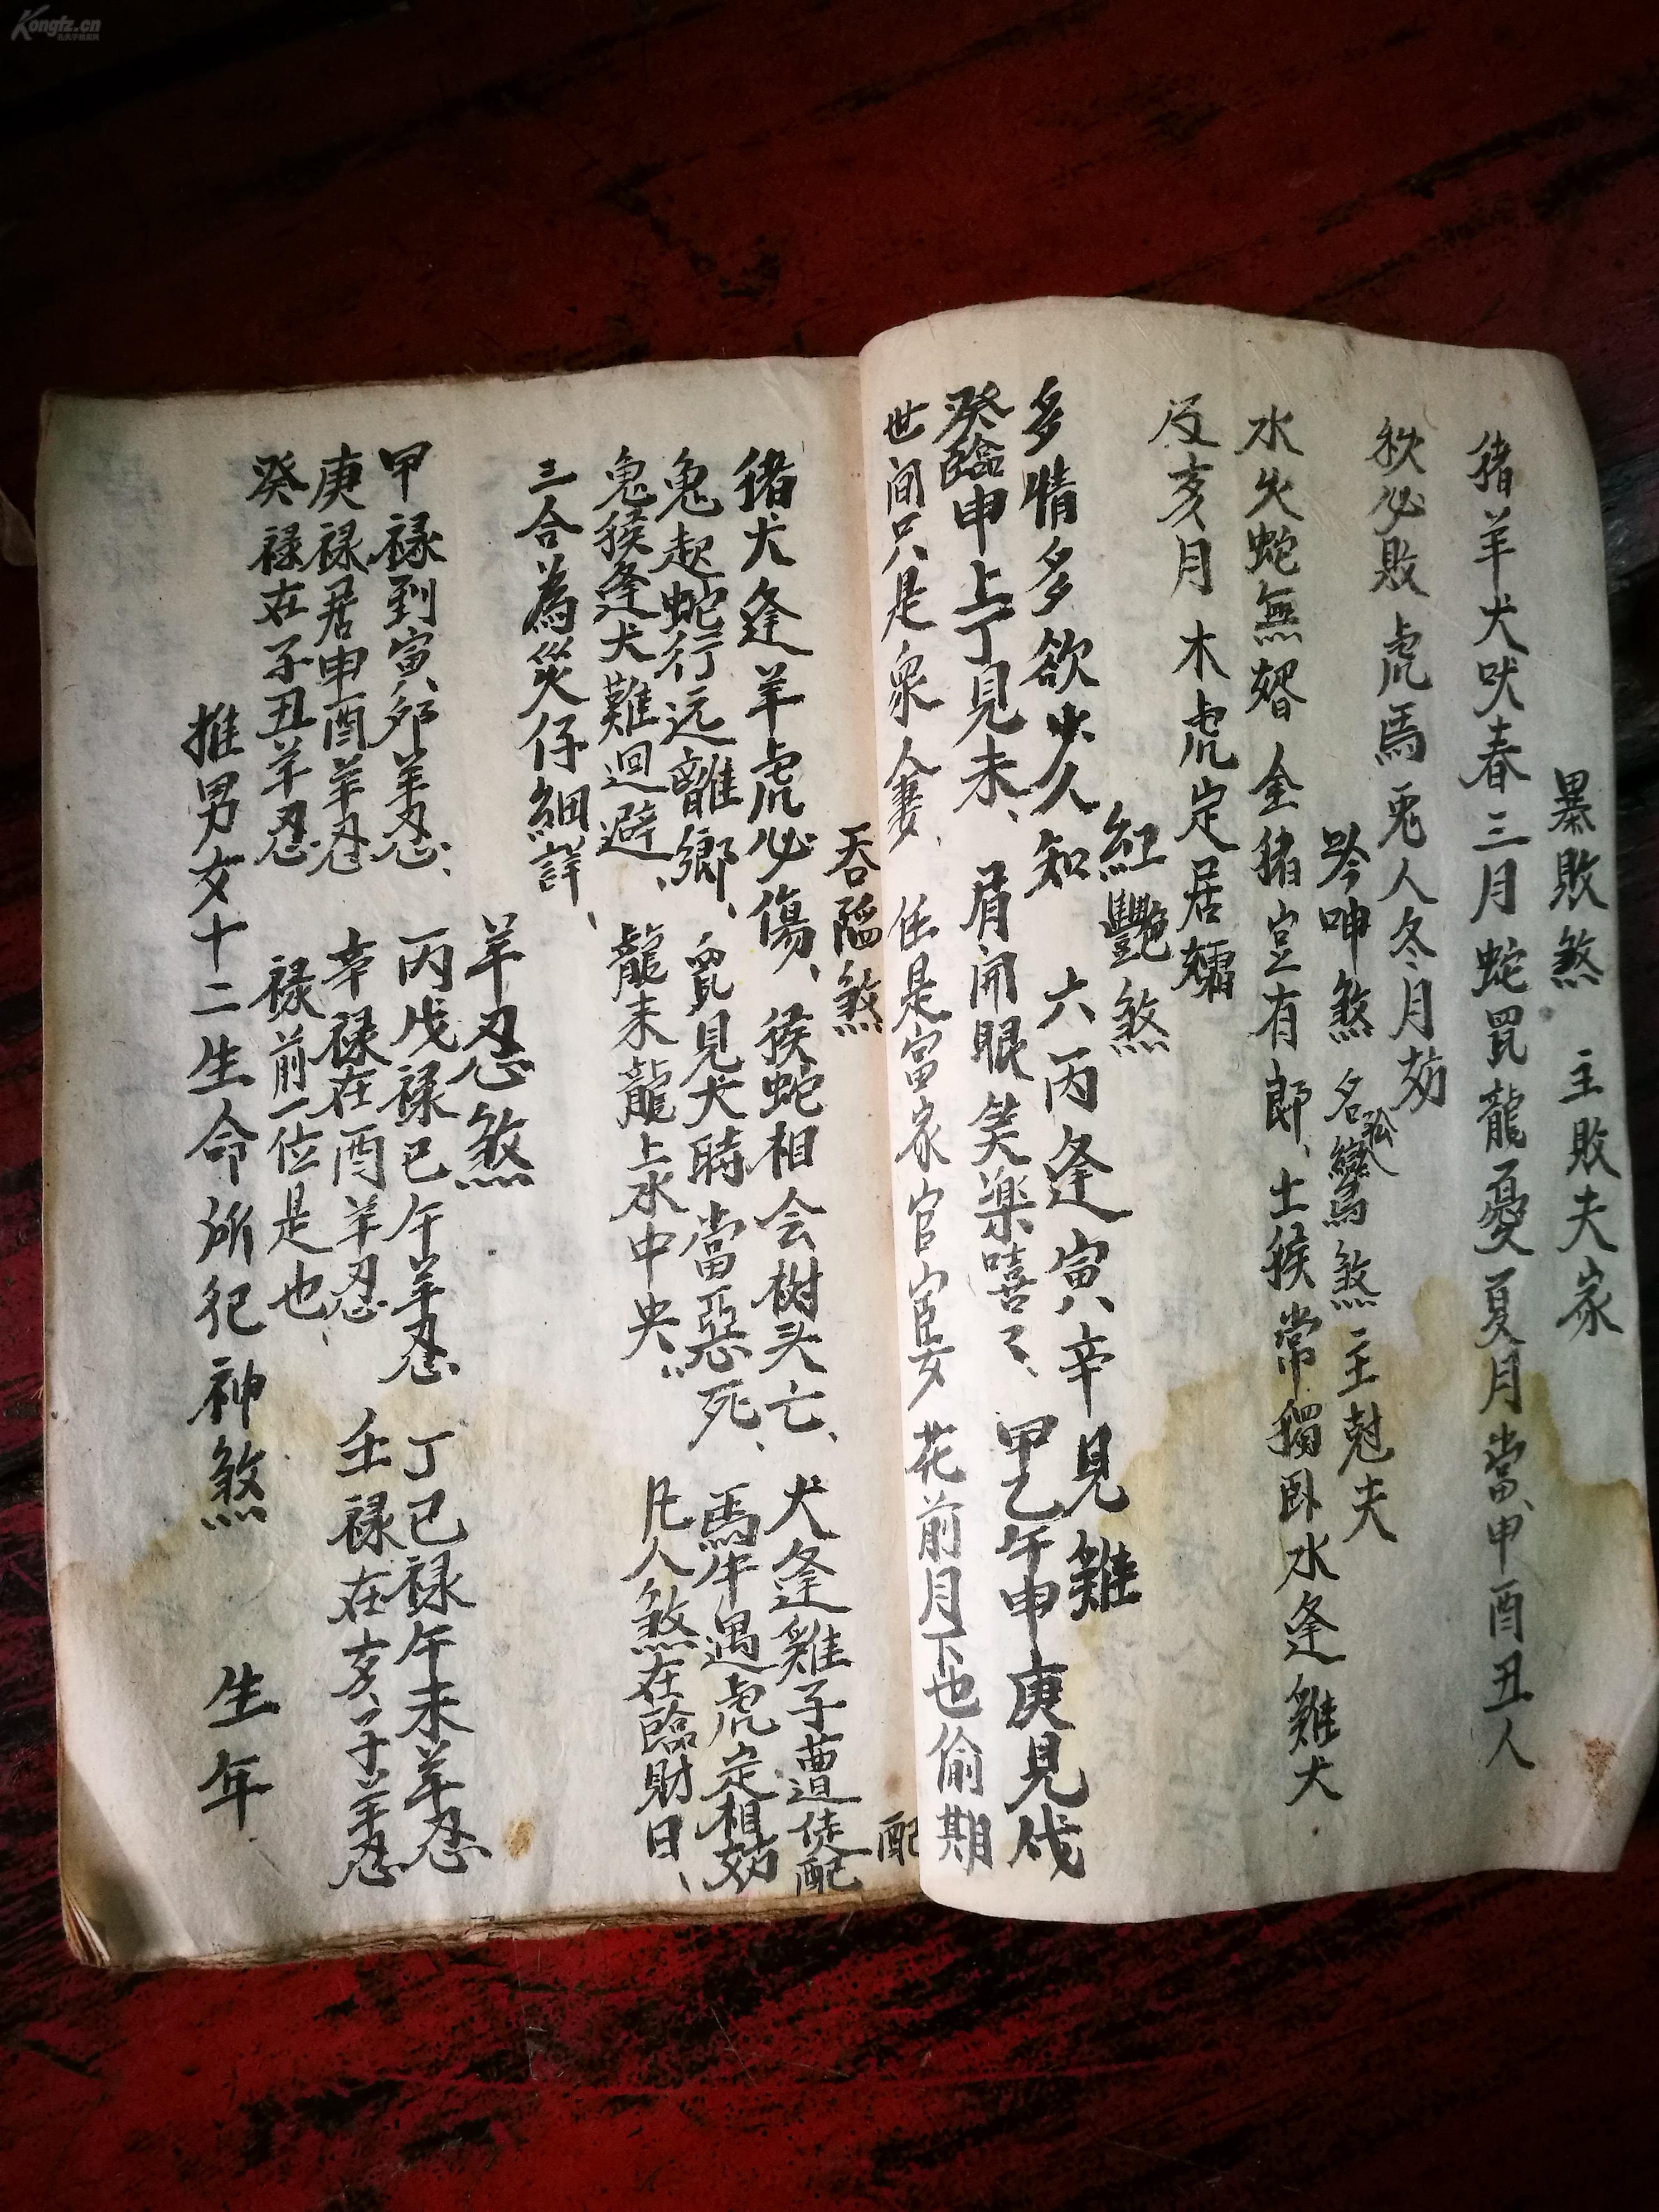 暴敗煞 主敗夫家
猪羊犬吠春三月 蛇鼠龍憂夏月當、申酉丑人
秋必敗 虎馬兎人冬月妨
吟呻煞 名孤鸞煞 主尅夫
水火蛇無婿 金猪豈有郎、土猴常獨臥 水逢雞犬
及亥月 木虎定居孀
紅艷煞
多情多欲少人知 六丙逢寅辛見雞
癸臨申上丁見未、眉開眼笑楽嘻々、甲乙午申庚見戌
世间只是衆人妻、任是富家官宦女 花前月下也偷期
吞陷煞
猪犬逢羊虎必傷、猴蛇相会树头亡、犬逢雞子遭徒配
配
兔起蛇行远離鄉、鼠見犬時當惡死、馬牛遇虎定相妨
兔猴逢犬難迴避、龍来龍上水中央、凡人煞在臨財日、
三合為災仔細詳、
羊忍煞
甲禄到寅卯羊忍、丙戊禄巳午羊忍 丁己禄午未羊忍
庚禄居申酉羊忍 辛禄在酉羊忍 壬禄在亥子羊忍
癸禄在子丑羊忍 禄前一位是也、
推男女十二生命所犯神煞 生年